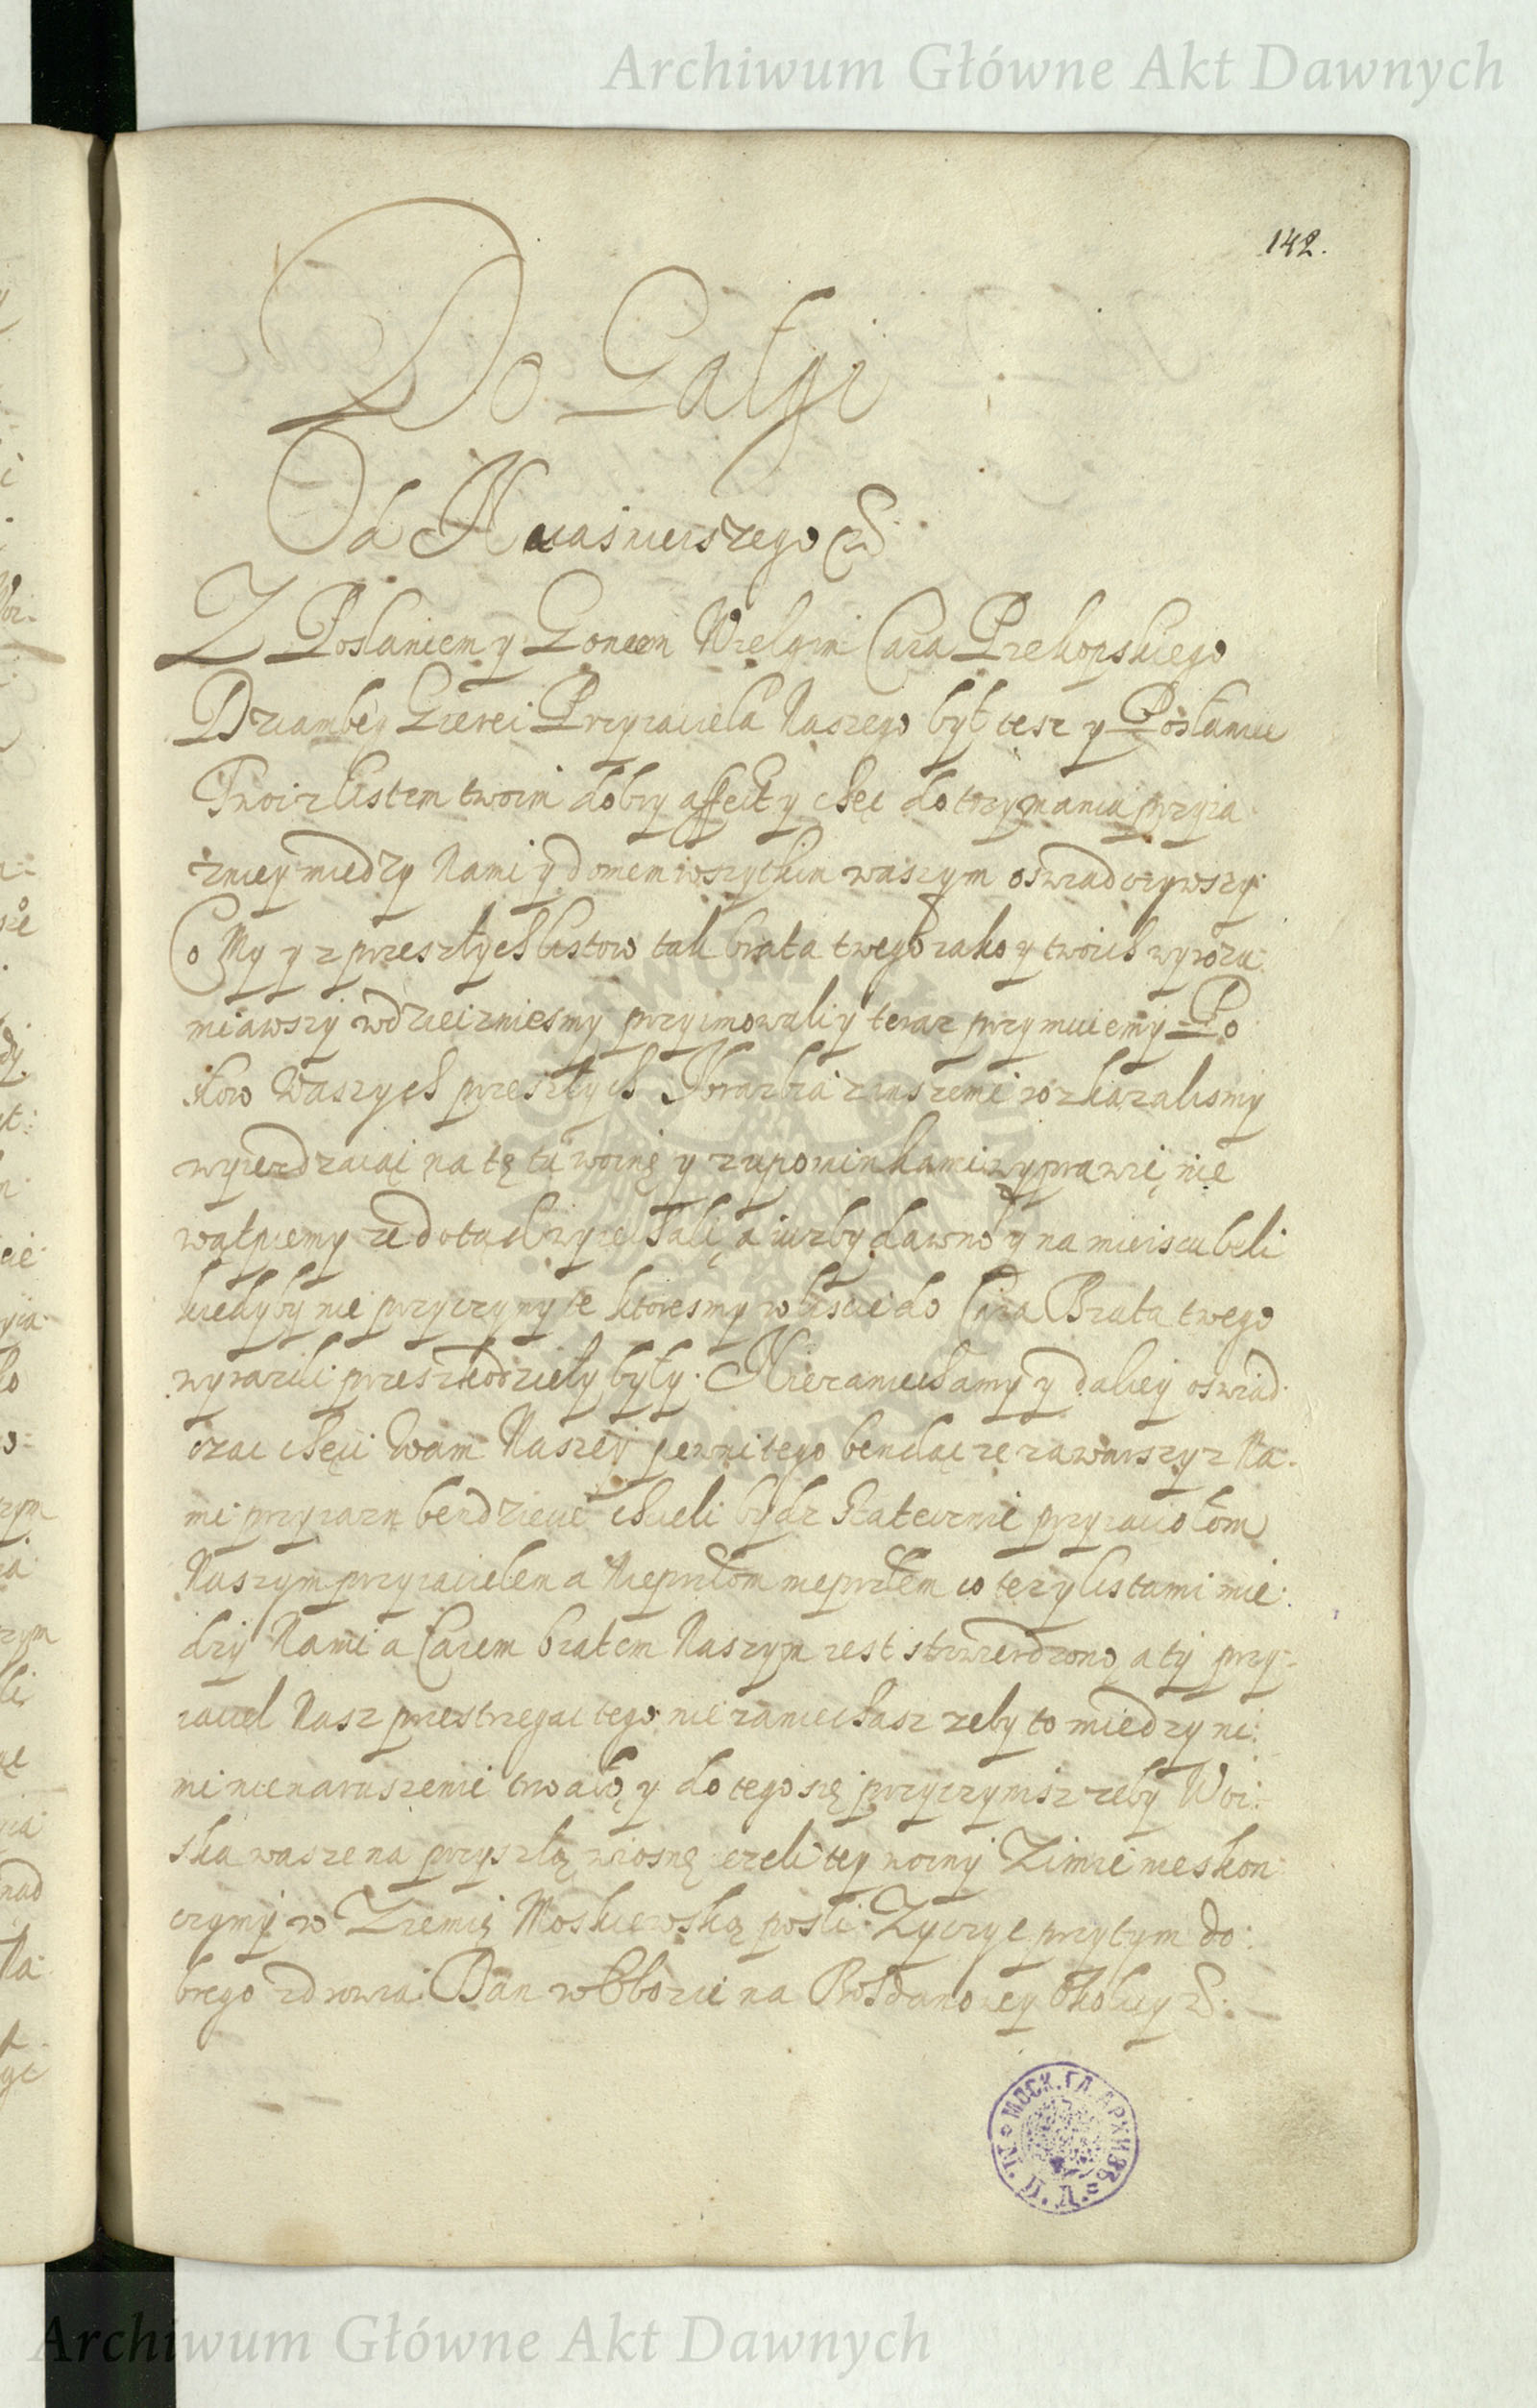 Archiwum Główne Akt Dawnych
142.
Do Gałgi
Od Naiaśnieiszego &
Z Posłaniem y Goncem Wielgim Cara Przekopskiego
Dziambey Gierei Przyiaciela Naszego był tesz y Posłaniec
Twoi z listem twoim dobry affect y chęć do trzymania przyia
zniey miedzy Nami y domem wszytkim waszym oświadczywszy
Co My y z przeszłych listow tak brata twego iako y twoich wyrozu
miawszy wdziecznieśmy przyimowali y teraz przymuiemy Po
słow Waszych przeszłych z naszemi rozkazalismy
wypierdzaiąc na tę tu woinę y z upominkami wyprawić, nie
wątpiemy ze dotąd wyiechali, a iuzby dawno y na mieiscu beli
kiedyby nie przyczyny te ktoresmy w liscie do Cara Brata twego
wyrazili przeszkodzieły były. Nie zaniechamy y daliey oswiad
czac chęci Wam Naszey pewni tego bendąc ze zawarszy z Na
mi przyiazn bendziecie chcieli bydz statecznie przyiaciołom
Naszym przyiacielem a Nieprłom nieprłem co tez y listami mie
dzy Nami a Carem bratem Naszym iest stwierdzono, a ty przy
iaciel Nasz przestrzegac tego nie zaniechasz zeby to miedzy ni
mi nienaruszenie trwało, y do tego się przyczynisz zeby Woi
ska wasze na przyszłą wiosnę iezeli tey woiny Zimie nieskon
czymy w Ziemię Moskiewską posli. Zyczyc przytym do
brego zdrowia. Dan w Obozie na Bohdanowey Okolicy &.
МОСК. ГЛ. АРХИВЪ М. И. Д.
Archiwum Główne Akt Dawnych